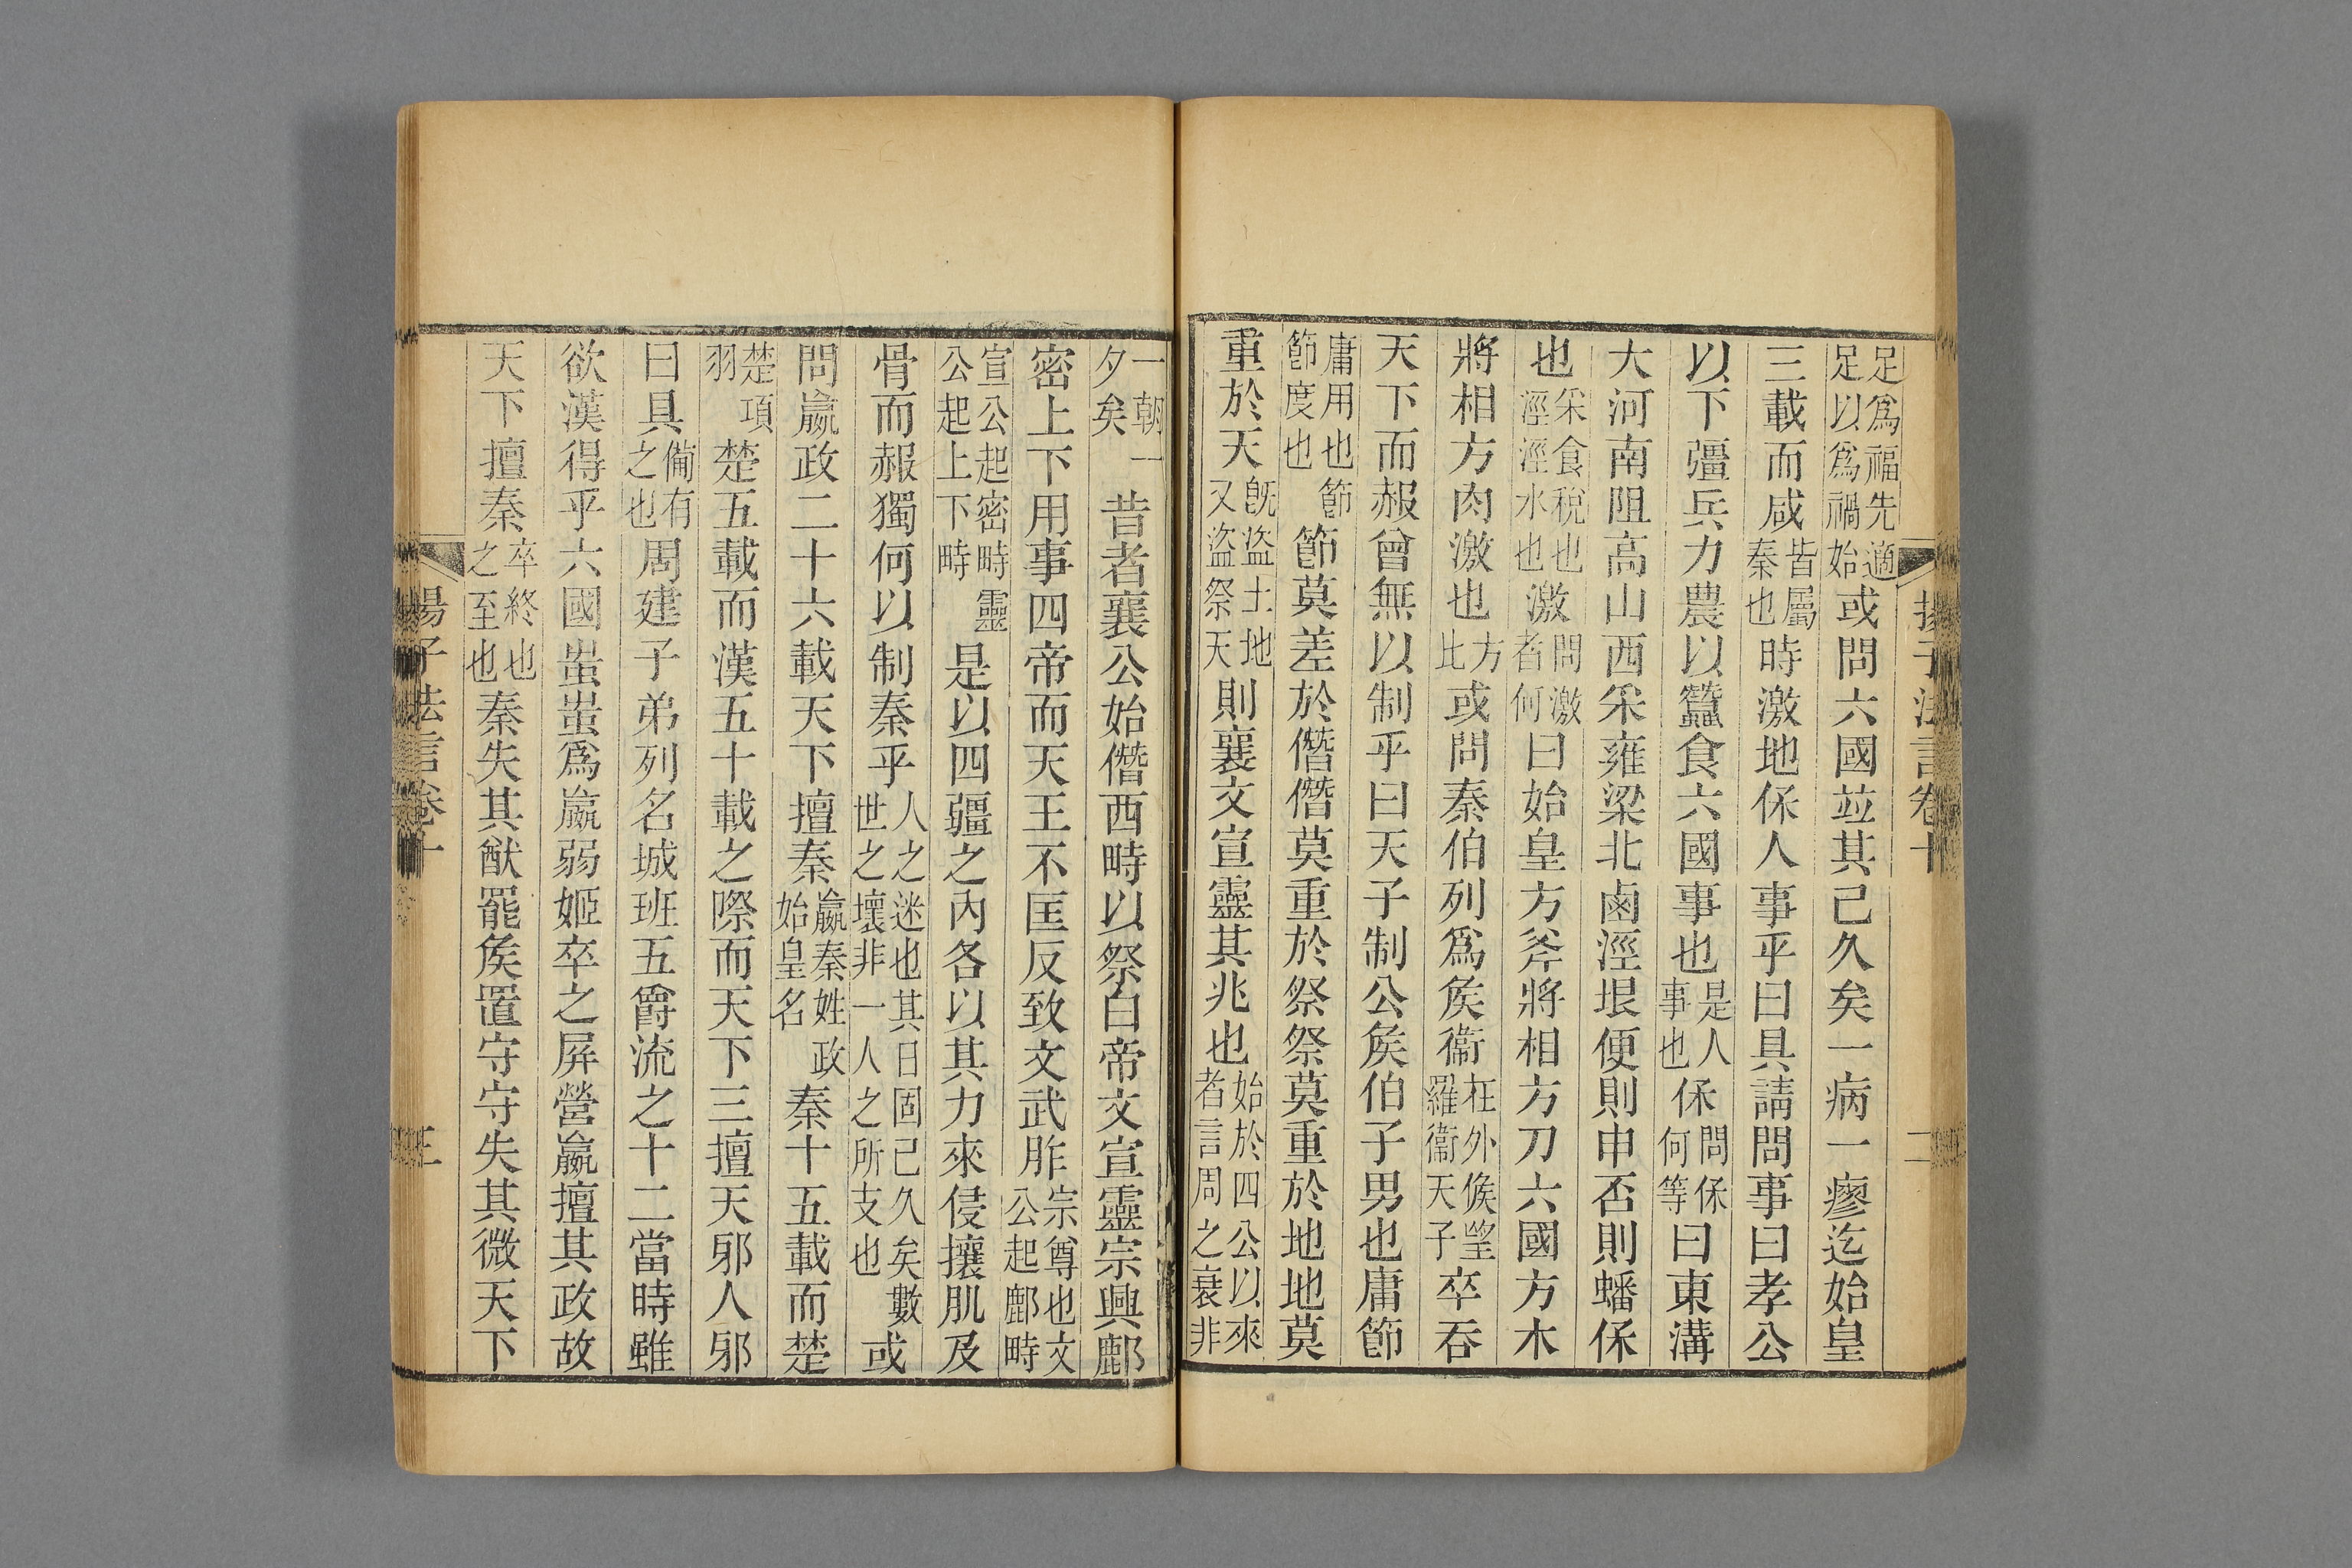 揚子法言卷十 二
足爲福先適足以爲禍始或問六國竝其己久矣一病一瘳迄始皇
三載而咸皆屬秦也時激地保人事乎曰具請問事曰孝公
以下彊兵力農以蠶食六國事也是人事也保問保何等曰東溝
大河南阻高山西采雍梁北鹵涇垠便則申否則蟠保
也采食稅也涇涇水也激問激者何曰始皇方斧將相方刀六國方木
將相方肉激也方比或問秦伯列爲矦衞在外候望羅衞天子卒吞
天下而赧曾無以制乎曰天子制公矦伯子男也庸節
庸用也節節度也節莫差於僭僭莫重於祭祭莫重於地地莫
重於天旣盜土地又盜祭天則襄文宣靈其兆也始於四公以來者言周之衰非
一朝一夕矣昔者襄公始僭西畤以祭白帝文宣靈宗興鄜
密上下用事四帝而天王不匡反致文武胙宗尊也文公起鄜畤
宣公起密畤靈公起上下畤是以四疆之內各以其力來侵攘肌及
骨而赧獨何以制秦乎人之迷也其日固己久矣數世之壞非一人之所支也或
問嬴政二十六載天下擅秦嬴秦姓政始皇名秦十五載而楚
楚項羽楚五載而漢五十載之際而天下三擅天邪人邪
曰具備有之也周建子弟列名城班五爵流之十二當時雖
欲漢得乎六國蚩蚩爲嬴弱姬卒之屏營嬴擅其政故
天下擅秦卒終也之至也秦失其猷罷矦置守守失其微天下
揚子法言卷十 三